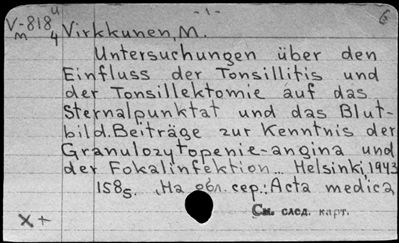 - 1 -
б
V-818 и
м 4
Virkkunen, M.
Untersuchungen über den
Einfluss der Tonsillitis und
der Tonsillektomie auf das
Sternalpunktat und das Blut-
bild. Beiträge zur Kenntnis der
Granulozytopenie-angina und
der Fokalinfektion... Helsinki, 1943
158 s. На обл. сер.: Acta medica
См. след. карт.
X +